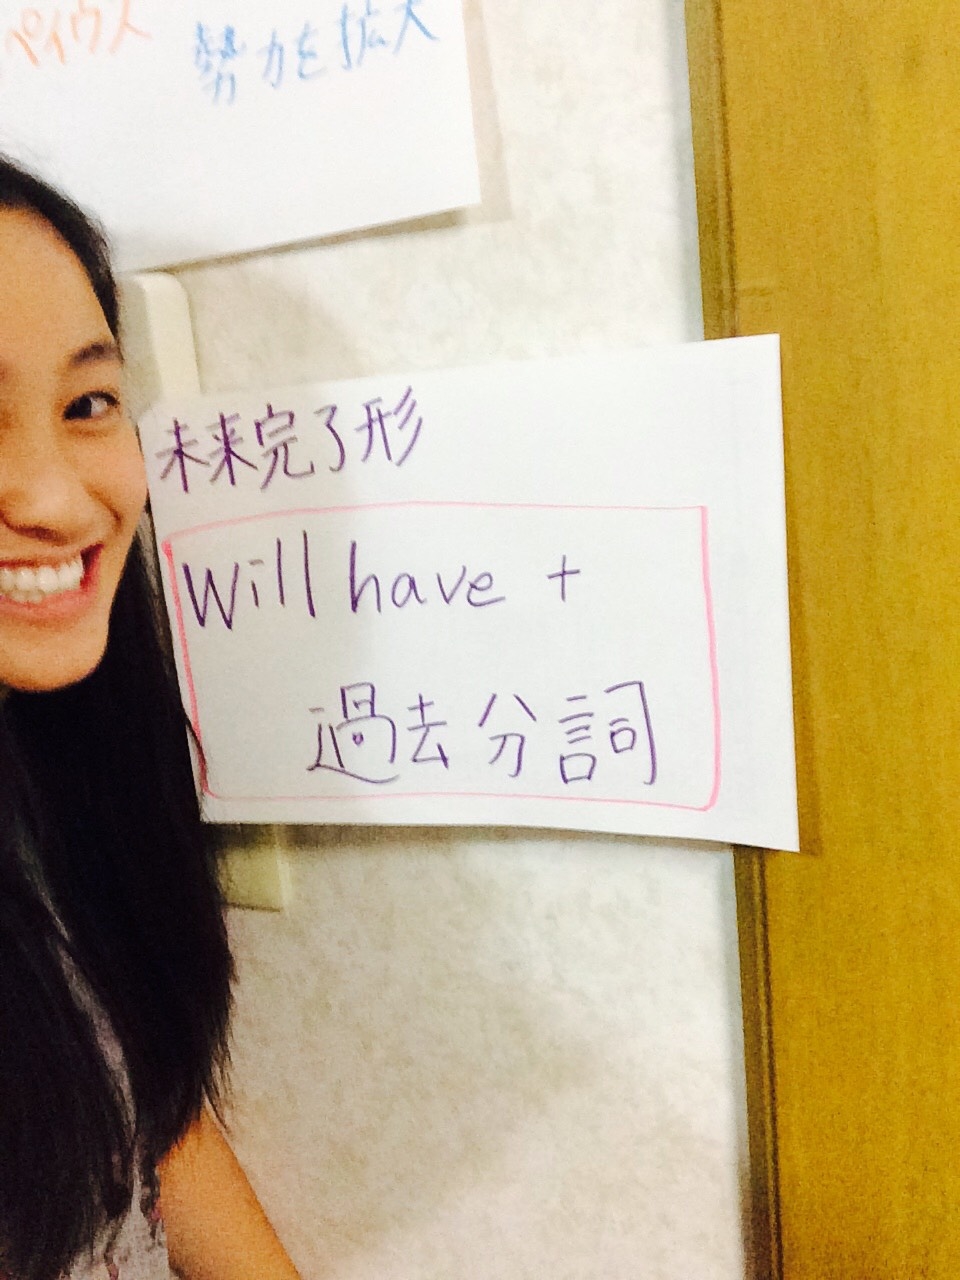 ペイウス
勢力を拡大
未来完了形
Will have +
過去分詞